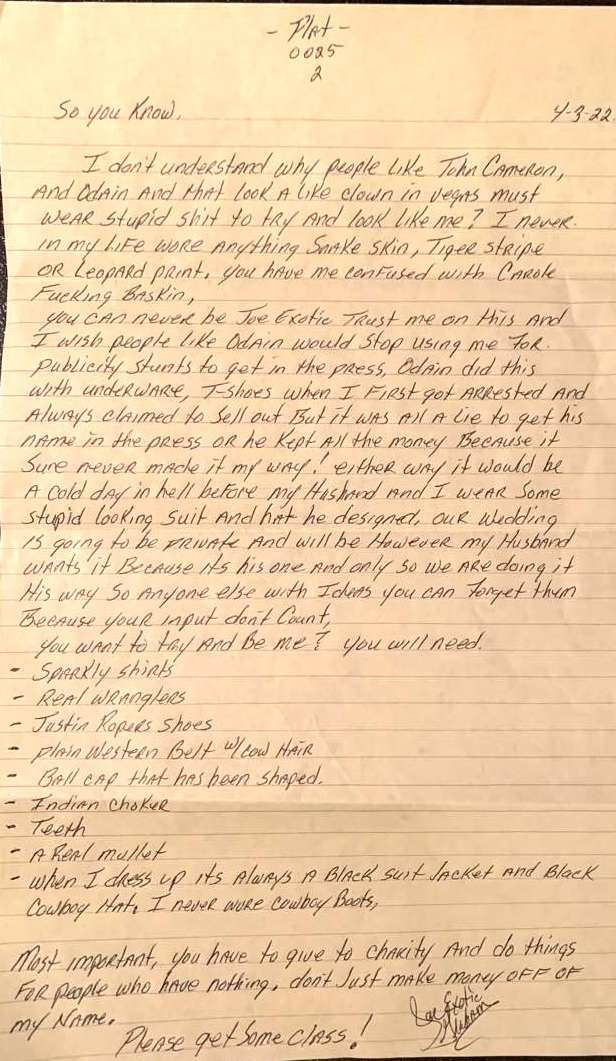 - Plat -
0025
2
So you Know, 4-3-22
I don't understand why people like John Cameron,
And Odain And that look A like clown in vegas must
wear stupid shit to try And look like me? I never
in my life wore Anything Snake skin, Tiger stripe
or Leopard print, you have me confused with Carole
Fucking Baskin,
you can never be Joe Exotic Trust me on this And
I wish people like Odain would stop using me for
publicity stunts to get in the press, Odain did this
with underware, T-shoes when I first got Arrested And
Always claimed to sell out But it was All A lie to get his
name in the press or he kept All the money Because it
sure never made it my way! either way it would be
A cold day in hell before my Husband And I wear some
stupid looking suit And hat he designed, our wedding
is going to be private And will be However my Husband
wants it Because its his one And only so we Are doing it
His way So Anyone else with Ideas you can forget them
Because your input don't Count,
you want to try And Be me? you will need.
- Sparkly shirts
- Real wranglers
- Justin Ropers shoes
- plain western Belt w/cow Hair
- Ball cap that has been shaped.
- Indian choker
- Teeth
- A Real mullet
- when I dress up its Always A Black suit Jacket And Black
Cowboy Hat, I never wore cowboy Boots,
Most important, you have to give to charity And do things
for people who have nothing, don't Just make money off of
my Name.
Joe Exotic
Please get Some class!